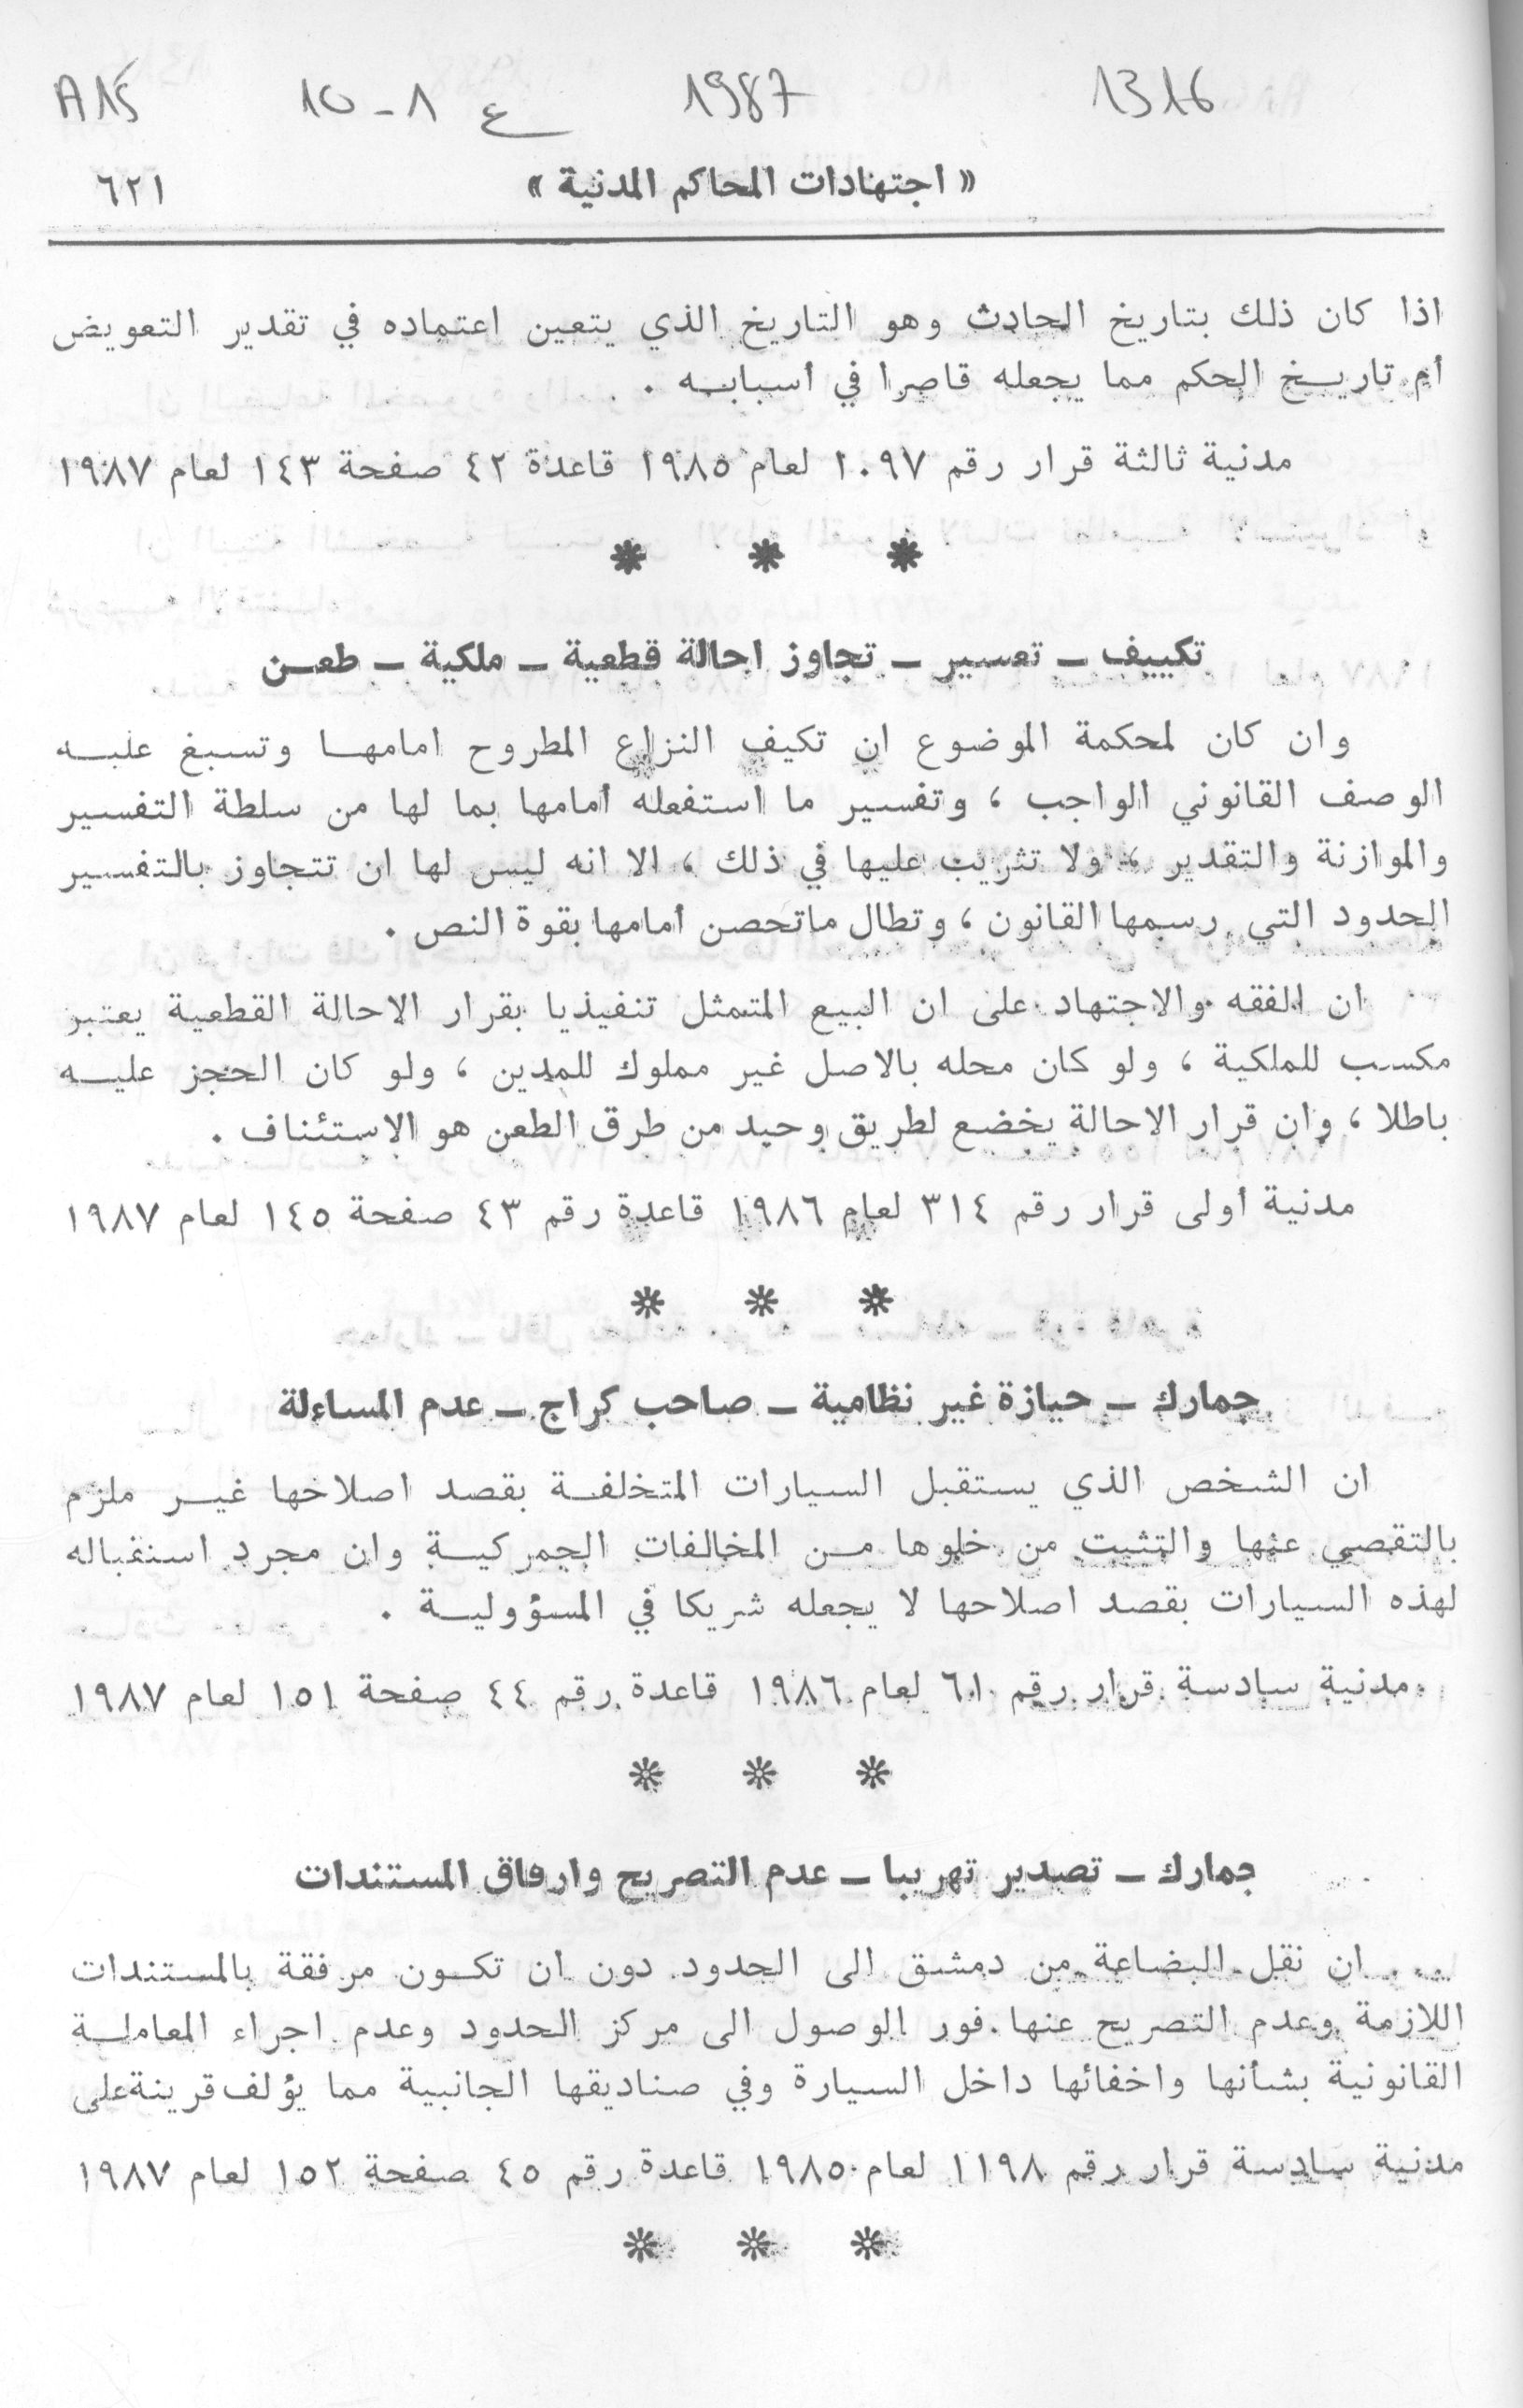 1316 1987 ع 8-10 A15
« اجتهادات المحاكم المدنية » ٦٢١
اذا كان ذلك بتاريخ الحادث وهو التاريخ الذي يتعين اعتماده في تقدير التعويض
أم تاريخ الحكم مما يجعله قاصرا في أسبابه .
مدنية ثالثة قرار رقم ١٠٩٧ لعام ١٩٨٥ قاعدة ٤٢ صفحة ١٤٣ لعام ١٩٨٧
* * *
تكييف ــ تعسير ــ تجاوز احالة قطعية ــ ملكية ــ طعن
وان كان لمحكمة الموضوع ان تكيف النزاع المطروح امامها وتسبغ عليه
الوصف القانوني الواجب ، وتفسير ما استفعله أمامها بما لها من سلطة التفسير
والموازنة والتقدير ، ولا تثريب عليها في ذلك ، الا انه ليس لها ان تتجاوز بالتفسير
الحدود التي رسمها القانون ، وتطال ماتحصن أمامها بقوة النص .
ان الفقه والاجتهاد على ان البيع المتمثل تنفيذيا بقرار الاحالة القطعية يعتبر
مكسب للملكية ، ولو كان محله بالاصل غير مملوك للمدين ، ولو كان الحجز عليه
باطلا ، وان قرار الاحالة يخضع لطريق وحيد من طرق الطعن هو الاستئناف .
مدنية أولى قرار رقم ٣١٤ لعام ١٩٨٦ قاعدة رقم ٤٣ صفحة ١٤٥ لعام ١٩٨٧
* * *
جمارك ــ حيازة غير نظامية ــ صاحب كراج ــ عدم المساءلة
ان الشخص الذي يستقبل السيارات المتخلفة بقصد اصلاحها غير ملزم
بالتقصي عنها والتثبت من خلوها من المخالفات الجمركية وان مجرد استقباله
لهذه السيارات بقصد اصلاحها لا يجعله شريكا في المسؤولية .
مدنية سادسة قرار رقم ٦١٠ لعام ١٩٨٦ قاعدة رقم ٤٤ صفحة ١٥١ لعام ١٩٨٧
* * *
جمارك ــ تصدير تهريبا ــ عدم التصريح وارفاق المستندات
ان نقل البضاعة من دمشق الى الحدود دون ان تكون مرفقة بالمستندات
اللازمة وعدم التصريح عنها فور الوصول الى مركز الحدود وعدم اجراء المعاملة
القانونية بشأنها واخفائها داخل السيارة وفي صناديقها الجانبية مما يؤلف قرينة على
مدنية سادسة قرار رقم ١١٩٨ لعام ١٩٨٥ قاعدة رقم ٤٥ صفحة ١٥٢ لعام ١٩٨٧
* * *